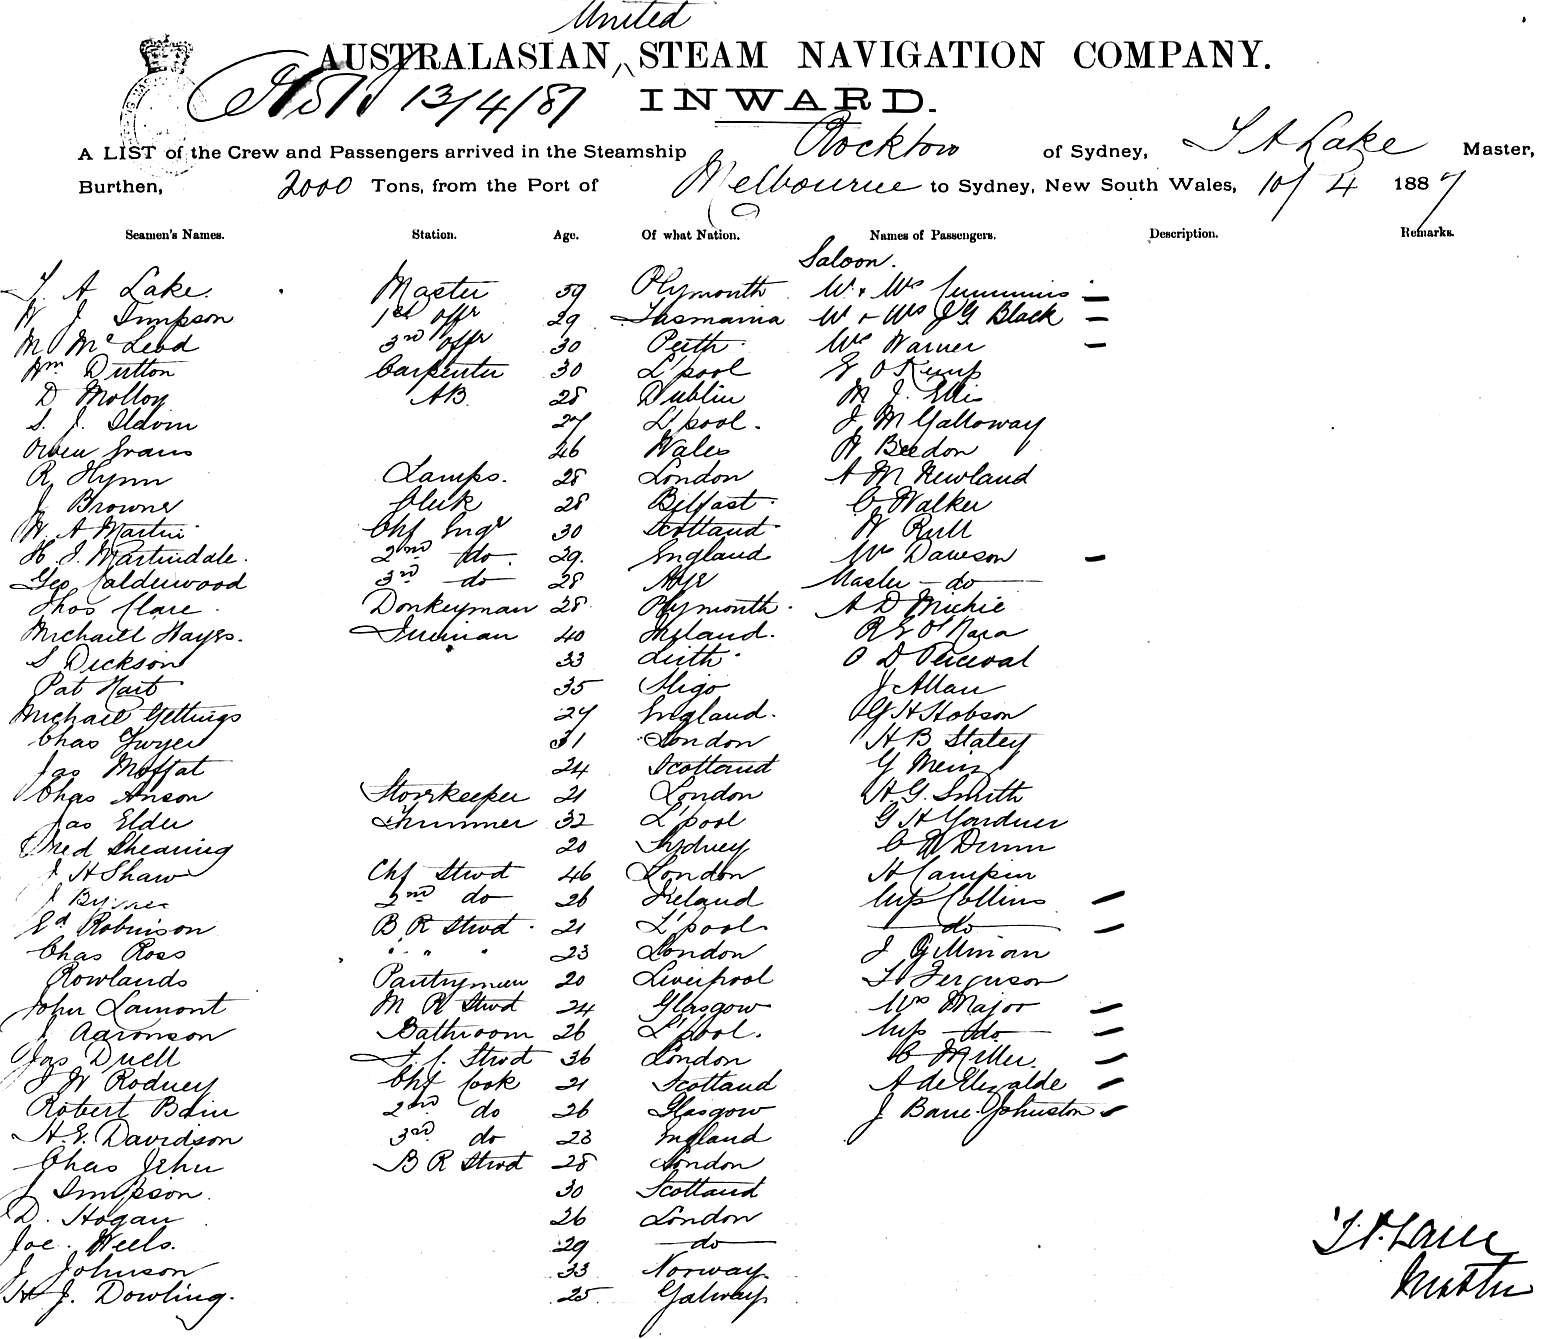 United
AUSTRALASIAN ^ STEAM NAVIGATION COMPANY.
13/4/87 INWARD.
A LIST of the Crew and Passengers arrived in the Steamship Rockton of Sydney, T A Lake Master,
Burthen, 2000 Tons, from the Port of Melbourne to Sydney, New South Wales, 10/4 1887
Seamen's Names. Station. Age. Of what Nation. Names of Passengers. Description. Remarks.
Saloon.
T. A Lake. Master 59 Plymouth Mr & Mrs Cummins –
W J Simpson 1st Offr 29 Tasmania Mr & Mrs J G Black –
M McLeod 3rd Offr 30 Perth Mrs Warner –
Wm Dutton Carpenter 30 L'pool E O Kemp
D Molloy AB 28 Dublin M J. Ellis
S. J. Slavin 27 L'pool. J M Galloway
Owen Evans 46 Wales W Beedon
R Flynn Lamps. 28 London A M Newland
J Browne Clerk 28 Belfast C Walker
W. A Martin Chf Engr 30 Scotland W Rull
H. J. Martindale. 2nd do. 29. England Mrs Dawson –
Geo Calderwood 3rd do 28 Ayr Master – do –
Thos Clare Donkeyman 28 Plymouth. A D Michie
Michael Hayes. Fireman 40 Ireland. R E O'Hara
S Dickson 33 Leith. O D Perceval
Pat Hart 35 Sligo J Allan
Michael Gettings 27 England. G H Hobson
Chas Gwyer 31 London H B Staley
Jas Moffat 24 Scotland G
Chas Anson Storekeeper 21 London H. G. Smith
Jas Elder Trimmer 32 L'pool G H Gardner
Fred Shearing 20 Sydney C W Dunn
J H Shaw Chf Stwd 46 London H Campin
J Byrnes 2nd do 26 Ireland Miss Collins –
Ed Robinson B R Stwd 21 L'pool – do – –
Chas Ross " " " 23 London J Gillman
Rowlands Pantryman 20 Liverpool T Ferguson
John Lamont M R Stwd 24 Glasgow Mrs Major –
J Aaronson Bathroom 26 L'pool. Miss – do – –
Jas Duell F. C. Stwd 36 London C Miller. –
J W Rodney Chf Cook 21 Scotland A de Elizalde –
Robert Bain 2nd do 26 Glasgow J Barre Johnston –
H. E. Davidson 3rd do 23 England
Chas Jehu B R Stwd 28 London
J Simpson. 30 Scotland
D. Hogan 26 London
Joe. Weels. 29 – do –
J Johnson 33 Norway.
H J. Dowling. 25 Galway
T A Lake
Master